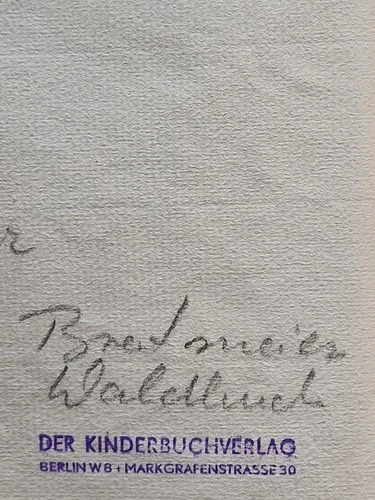 r
Bredmeier
Waldbuch
DER KINDERBUCHVERLAG
BERLIN W 8 + MARKGRAFENSTRASSE 30